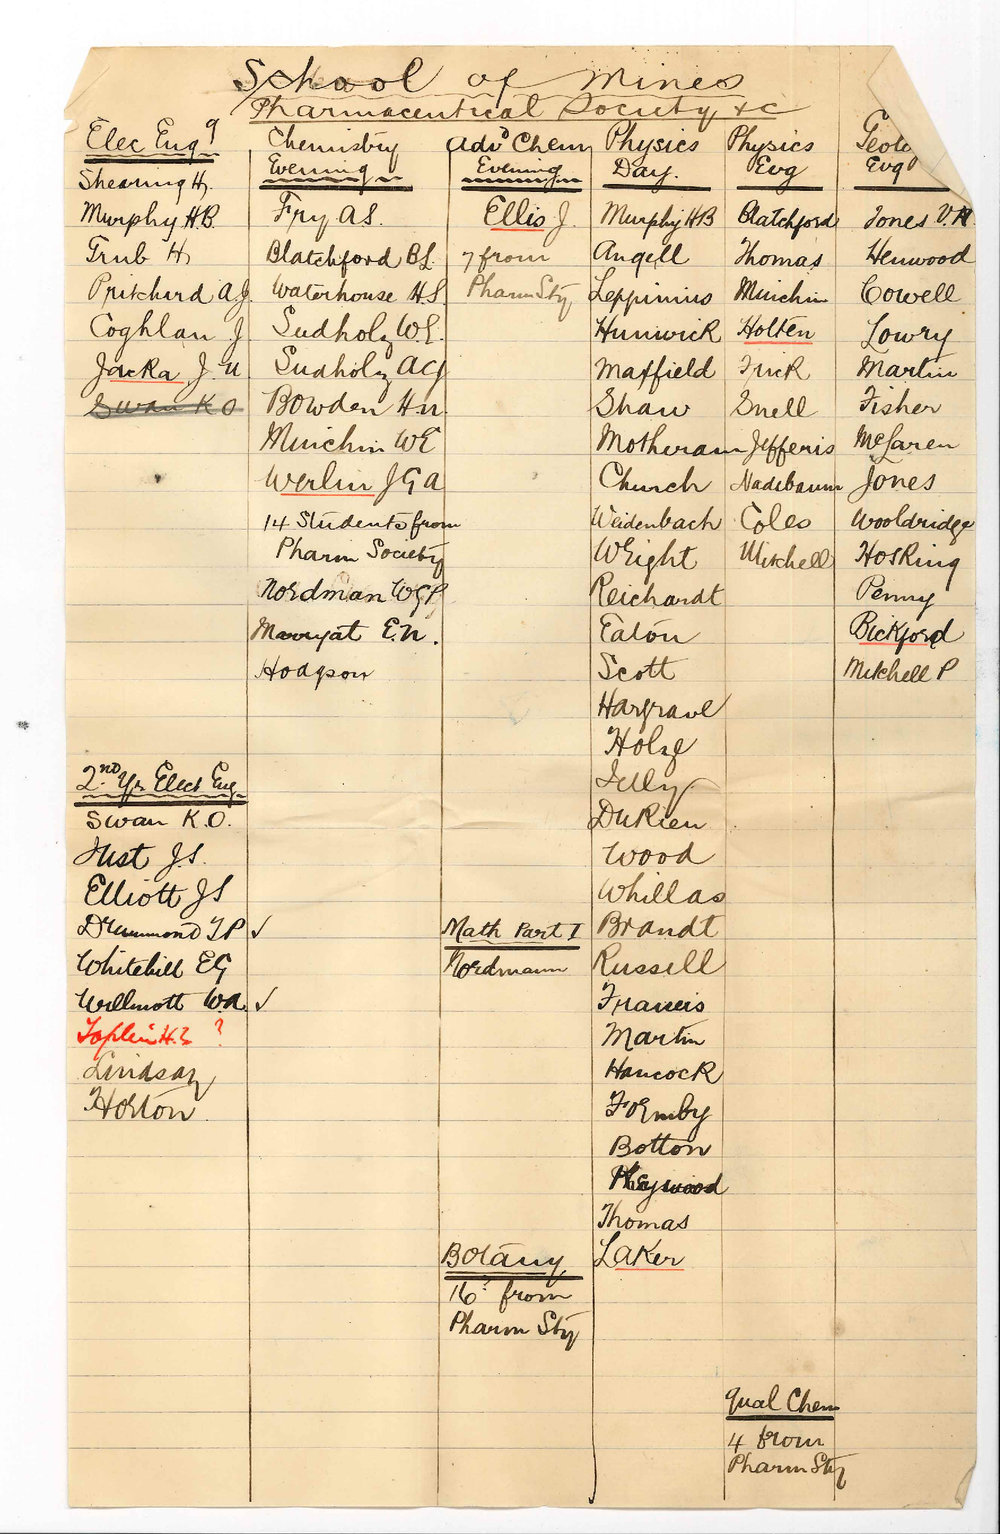 School of Mines
Pharmaceutical Society &c
Elec Eng g
Shearing H.
Murphy H.B.
Trub H
Pritchard A.J.
Coghlan J
Jacka J. N
Swan K O
2nd Yr Elect Eng
Swan K.O.
Just J.S.
Elliott J S
Drummond T P ✓
Whitehill E G
Willmott W.A. ✓
Toplin H.L ?
Lindsay
Horton
Chemistry
Evening
Fry A S.
Blatchford B L.
Waterhouse H S
Sudholz W E.
Sudholz A C J
Bowden H N
Minchin W E
Werlin J G A
14 Students from
Pharm Society
Nordman W G P
Marryat E. N.
Hodgson
Advd Chem
Evening
Ellis J.
7 from
Pharm Sty
Math Part I
Nordmann
Botany
16 from
Pharm Sty
Physics
Day.
Murphy H B
Angell
Leppinus
Hunwick
Maffield
Shaw
Motheram
Church
Weidenbach
Wright
Reichardt
Eaton
Scott
Hargrave
Holze
Jelly
DuRieu
Wood
Whillas
Brandt
Russell
Francis
Martin
Hancock
Formby
Botton
Heywood
Thomas
Laker
Physics
Evg
Blatchford
Thomas
Minchin
Holten
Frick
Snell
Jefferis
Nadebaum
Coles
Mitchell
Qual Chem
4 from
Pharm Sty
Geolo
Evg
Jones V. H.
Henwood
Cowell
Lowry
Martin
Fisher
McLaren
Jones
Wooldridge
Hosking
Penny
Bickford
Mitchell P